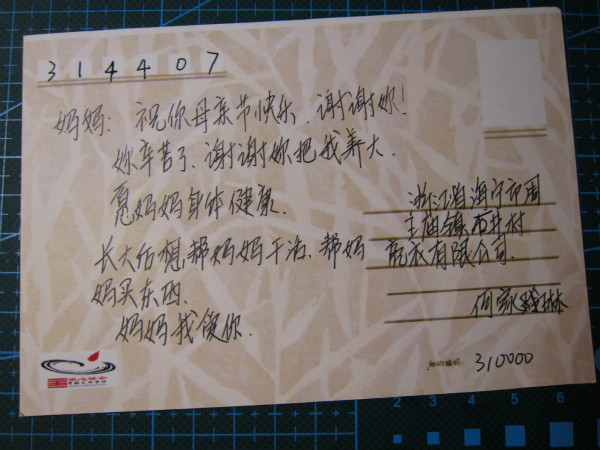 314407
妈妈:祝你母亲节快乐、谢谢妳!
妳辛苦了、谢谢妳把我养大.
愿妈妈身体健康.
长大后想帮妈妈干活、帮妈
妈买东西.
妈妈我爱你.
浙江省海宁市周
王庙镇石井村
有限公司.
何家
邮政编码:310000
2 3 4 5 6